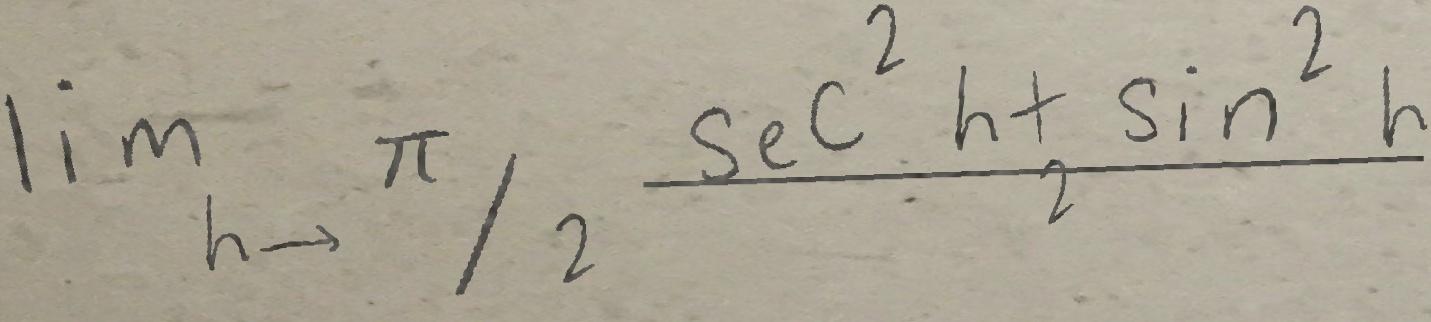 lim h→ π/2 sec² h+ sin² h / 2